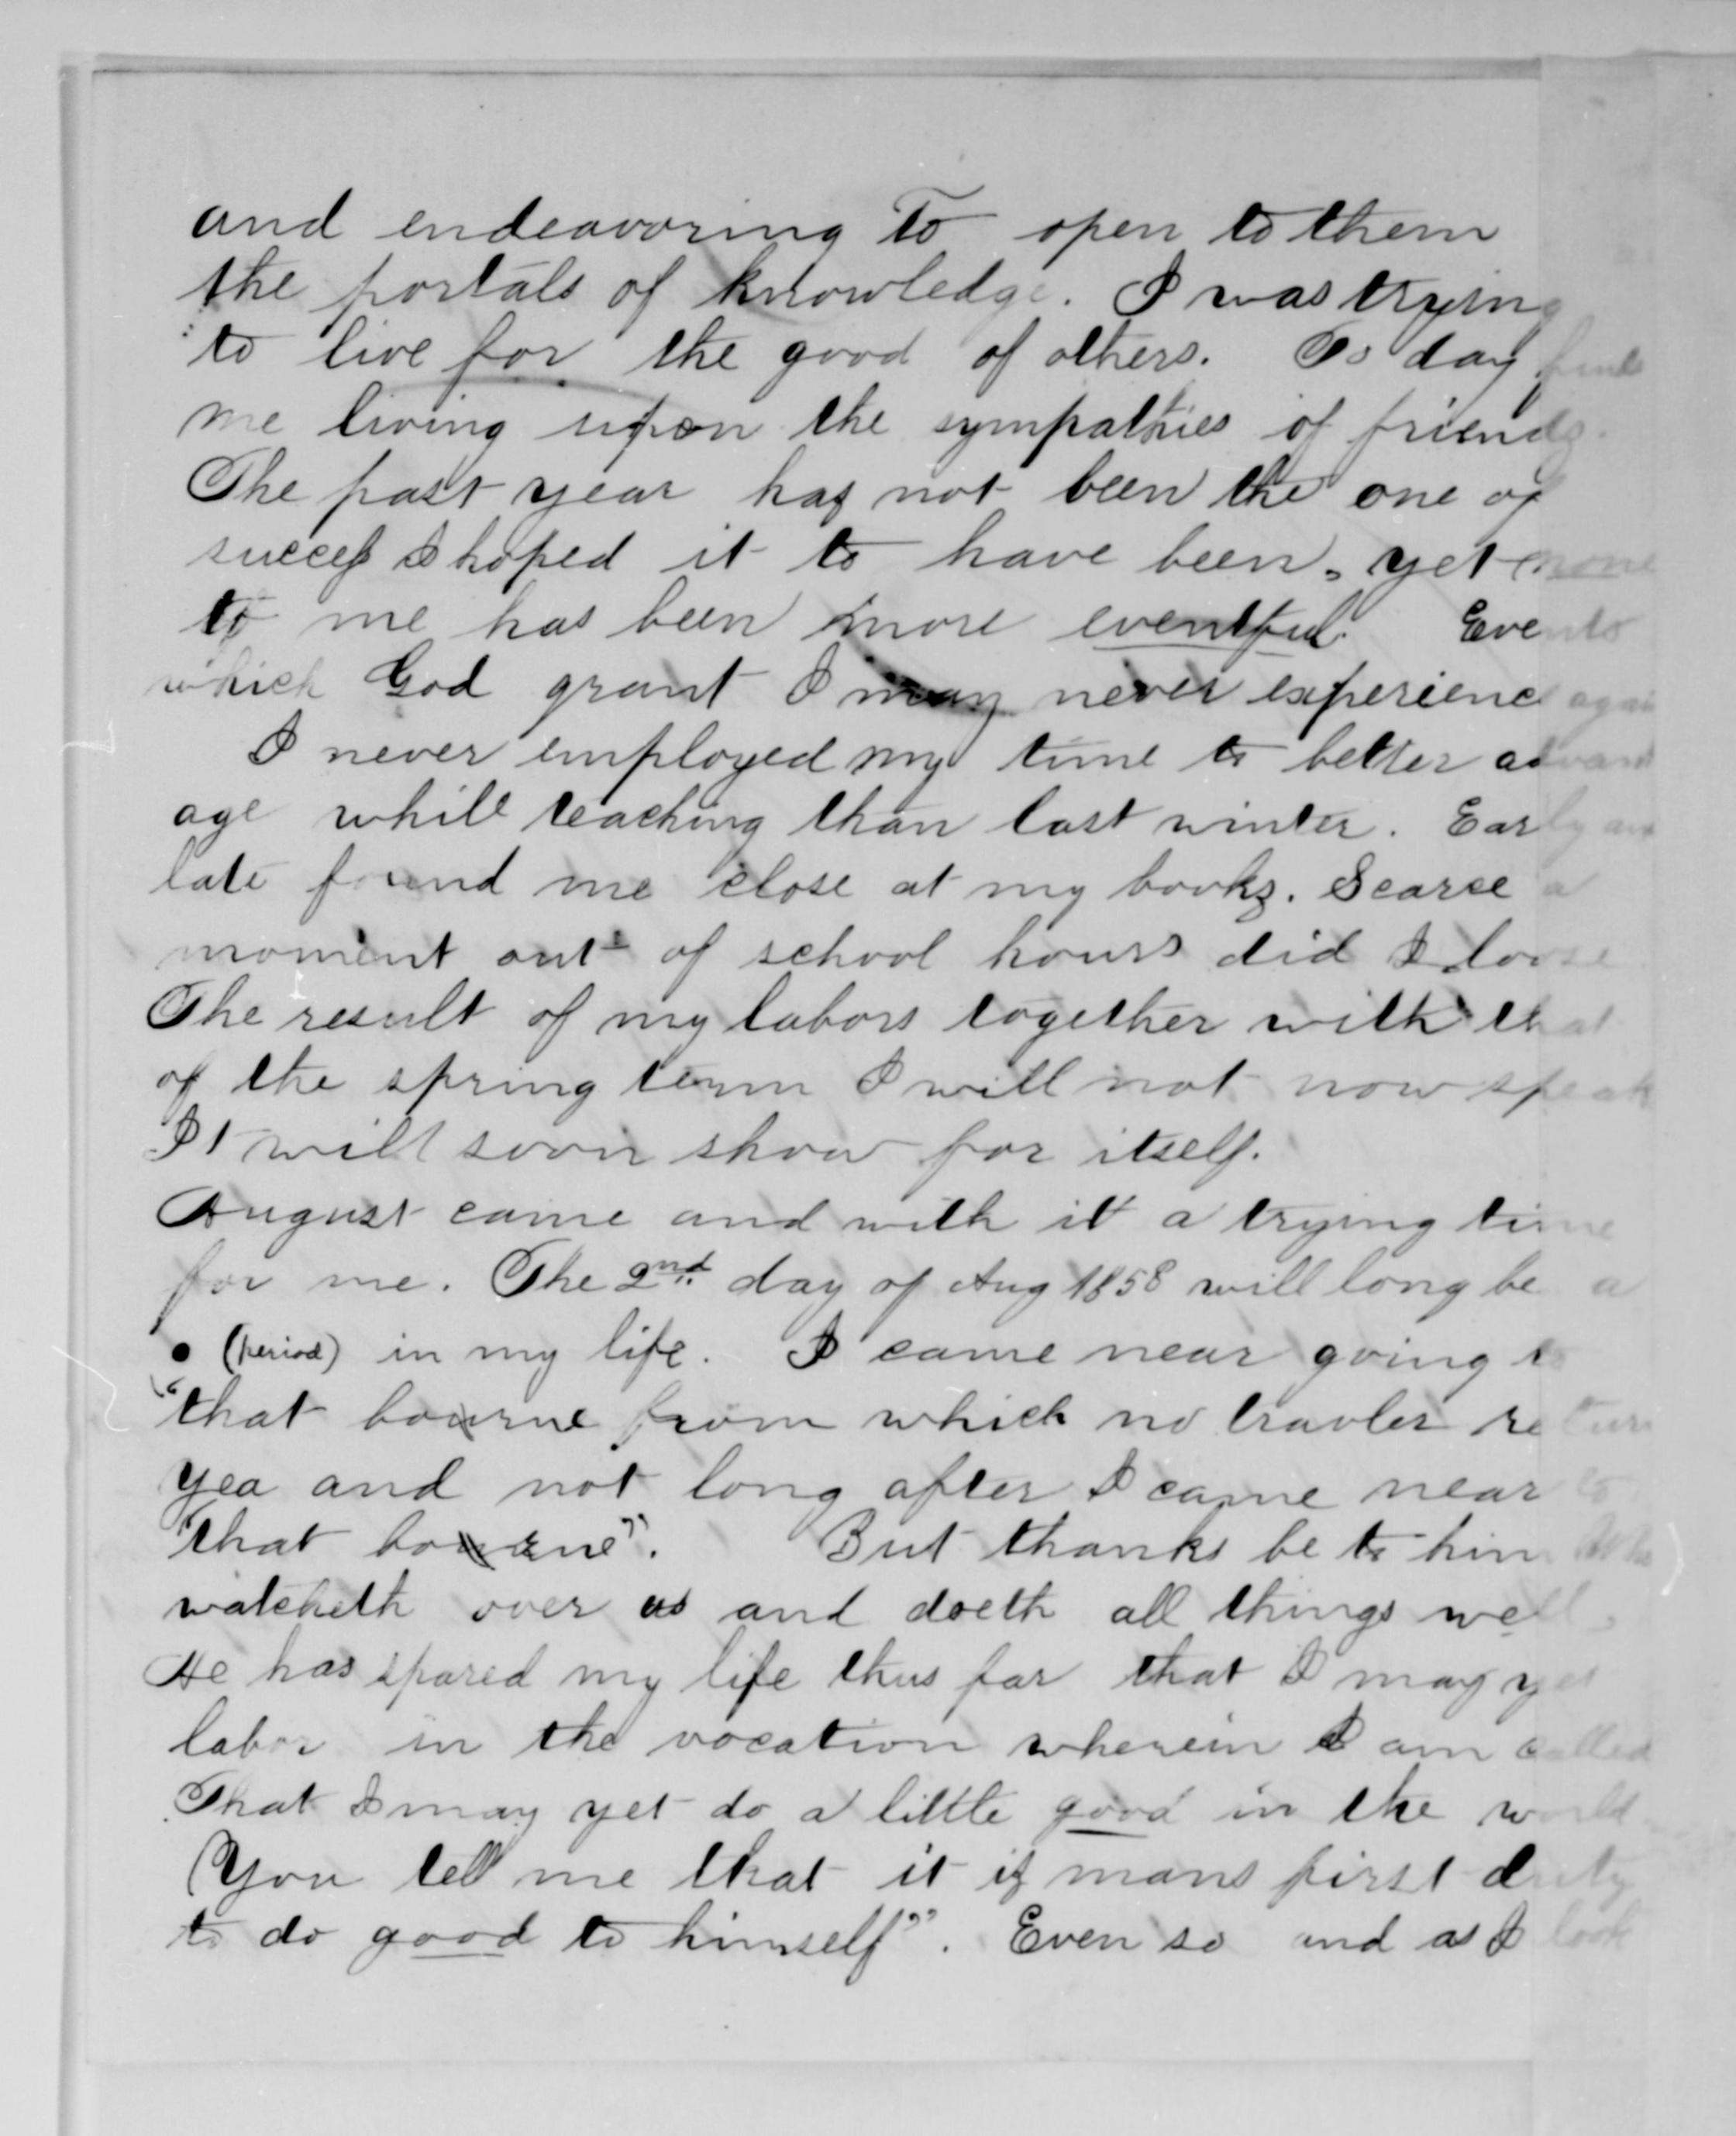 and endeavoring To open to them
the portals of knowledge. I was trying
to live for the good of others. To day finds
me living upon the sympathies of friends.
The past year has not been the one of
success I hoped it to have been, yet none
to me has been more eventful. Events
which God grant I may never experience again
I never employed my time to better advant
age while teaching than last winter. Early and
late found me close at my books. Scarce a
moment out of school hours did I loose
The result of my labors together with that
of the spring term I will not now speak
It will soon show for itself.
August came and with it a trying time
for me. The 2nd. day of Aug 1858 will long be a
• (period) in my life. I came near going to
"that bourne from which no travler return
Yea and not long after I came near to
"that bourne". But thanks be to him who
watcheth over us and doeth all things well.
He has spared my life thus far that I may yet
labor in the vocation wherein I am called
That I may yet do a little good in the world.
(You tell me that it is mans first duty
to do good to himself". Even so and as I look